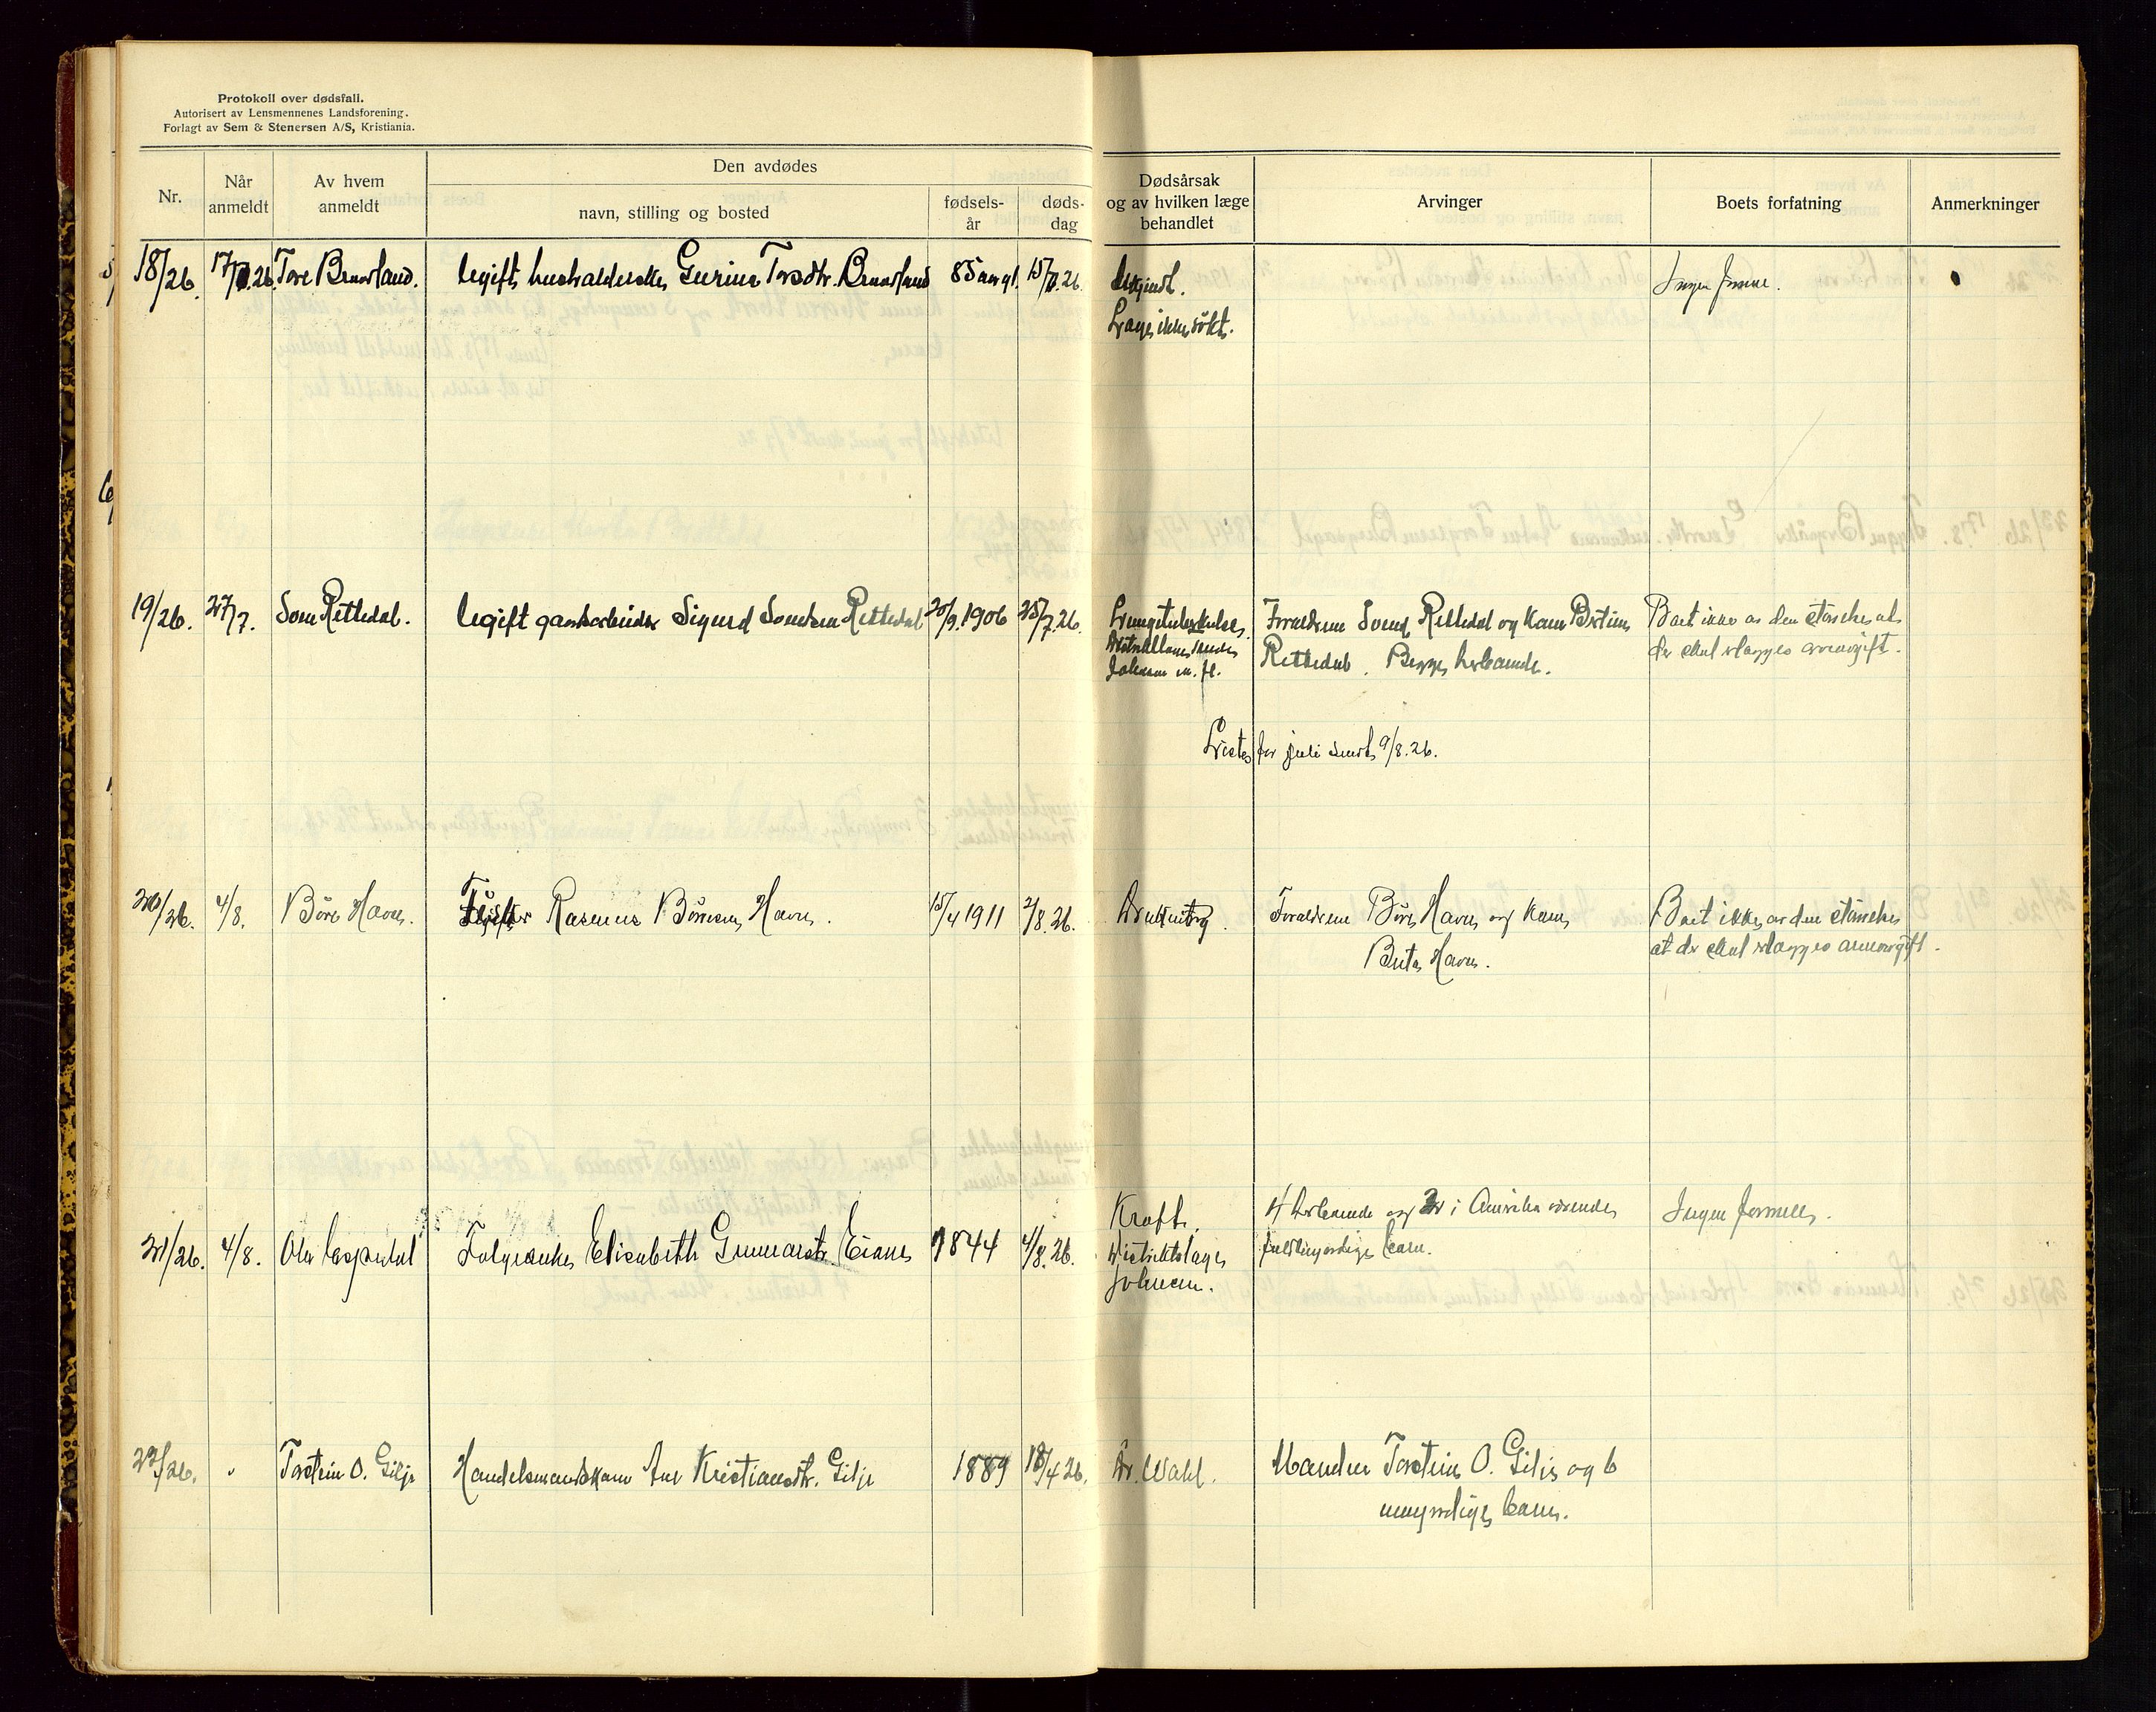 Protokoll over dødsfall.
Autorisert av Lensmennenes Landsforening.
Forlagt av Sem & Stenersen A/S, Kristiania.
Nr.
Når anmeldt
Av hvem anmeldt
Den avdødes
navn, stilling og bosted
fødsels-år
døds-dag
Dødsårsak og av hvilken læge behandlet
Arvinger
Boets forfatning
Anmerkninger
18/26. 17/7.26. Tore Bruarland. Ugift husholderske Gurine Toresdtr. Bruarland 85 aar gl. 15/7.26. Ingen formue.
Læge ikke søkt.
19/26. 27/7. Sven Rettedal. Ugift gaardsarbeider Sigurd Svendsen Rettedal 20/9.1906 25/7.26. Lungetuberkulose. Forældrene Svend Rettedal og kone Bertine Boet ikke av den størrelse at
Distriktslæge
Johnsen m. fl. Rettedal. Begge herboende. der skal erlægges arveavgift.
Liste for juli sendt 9/8.26.
20/26. 4/8. Børe Havn. Fisker Rasmus Børesen Havn. 15/4 1911 2/8.26. Drukning. Forældrene Børe Havn og kone Boet ikke av den størrelse
Berta Havn. at der skal erlægges arveavgift.
21/26. 4/8. Ola Espedal Folgeenke Elisabeth Gunnarsdtr. Eiane 1844 4/8.26. Kræft. 4 herboende og 2 i Amerika værende Ingen formue.
Distriktslæge fuldmyndige barn.
Johnsen.
22/26. " Torstein O. Gilje Handelsmandskone Ane Kristiansdtr. Gilje 1889 18/4 26. Dr. Wahl. Manden Torstein O. Gilje og 6
umyndige barn.